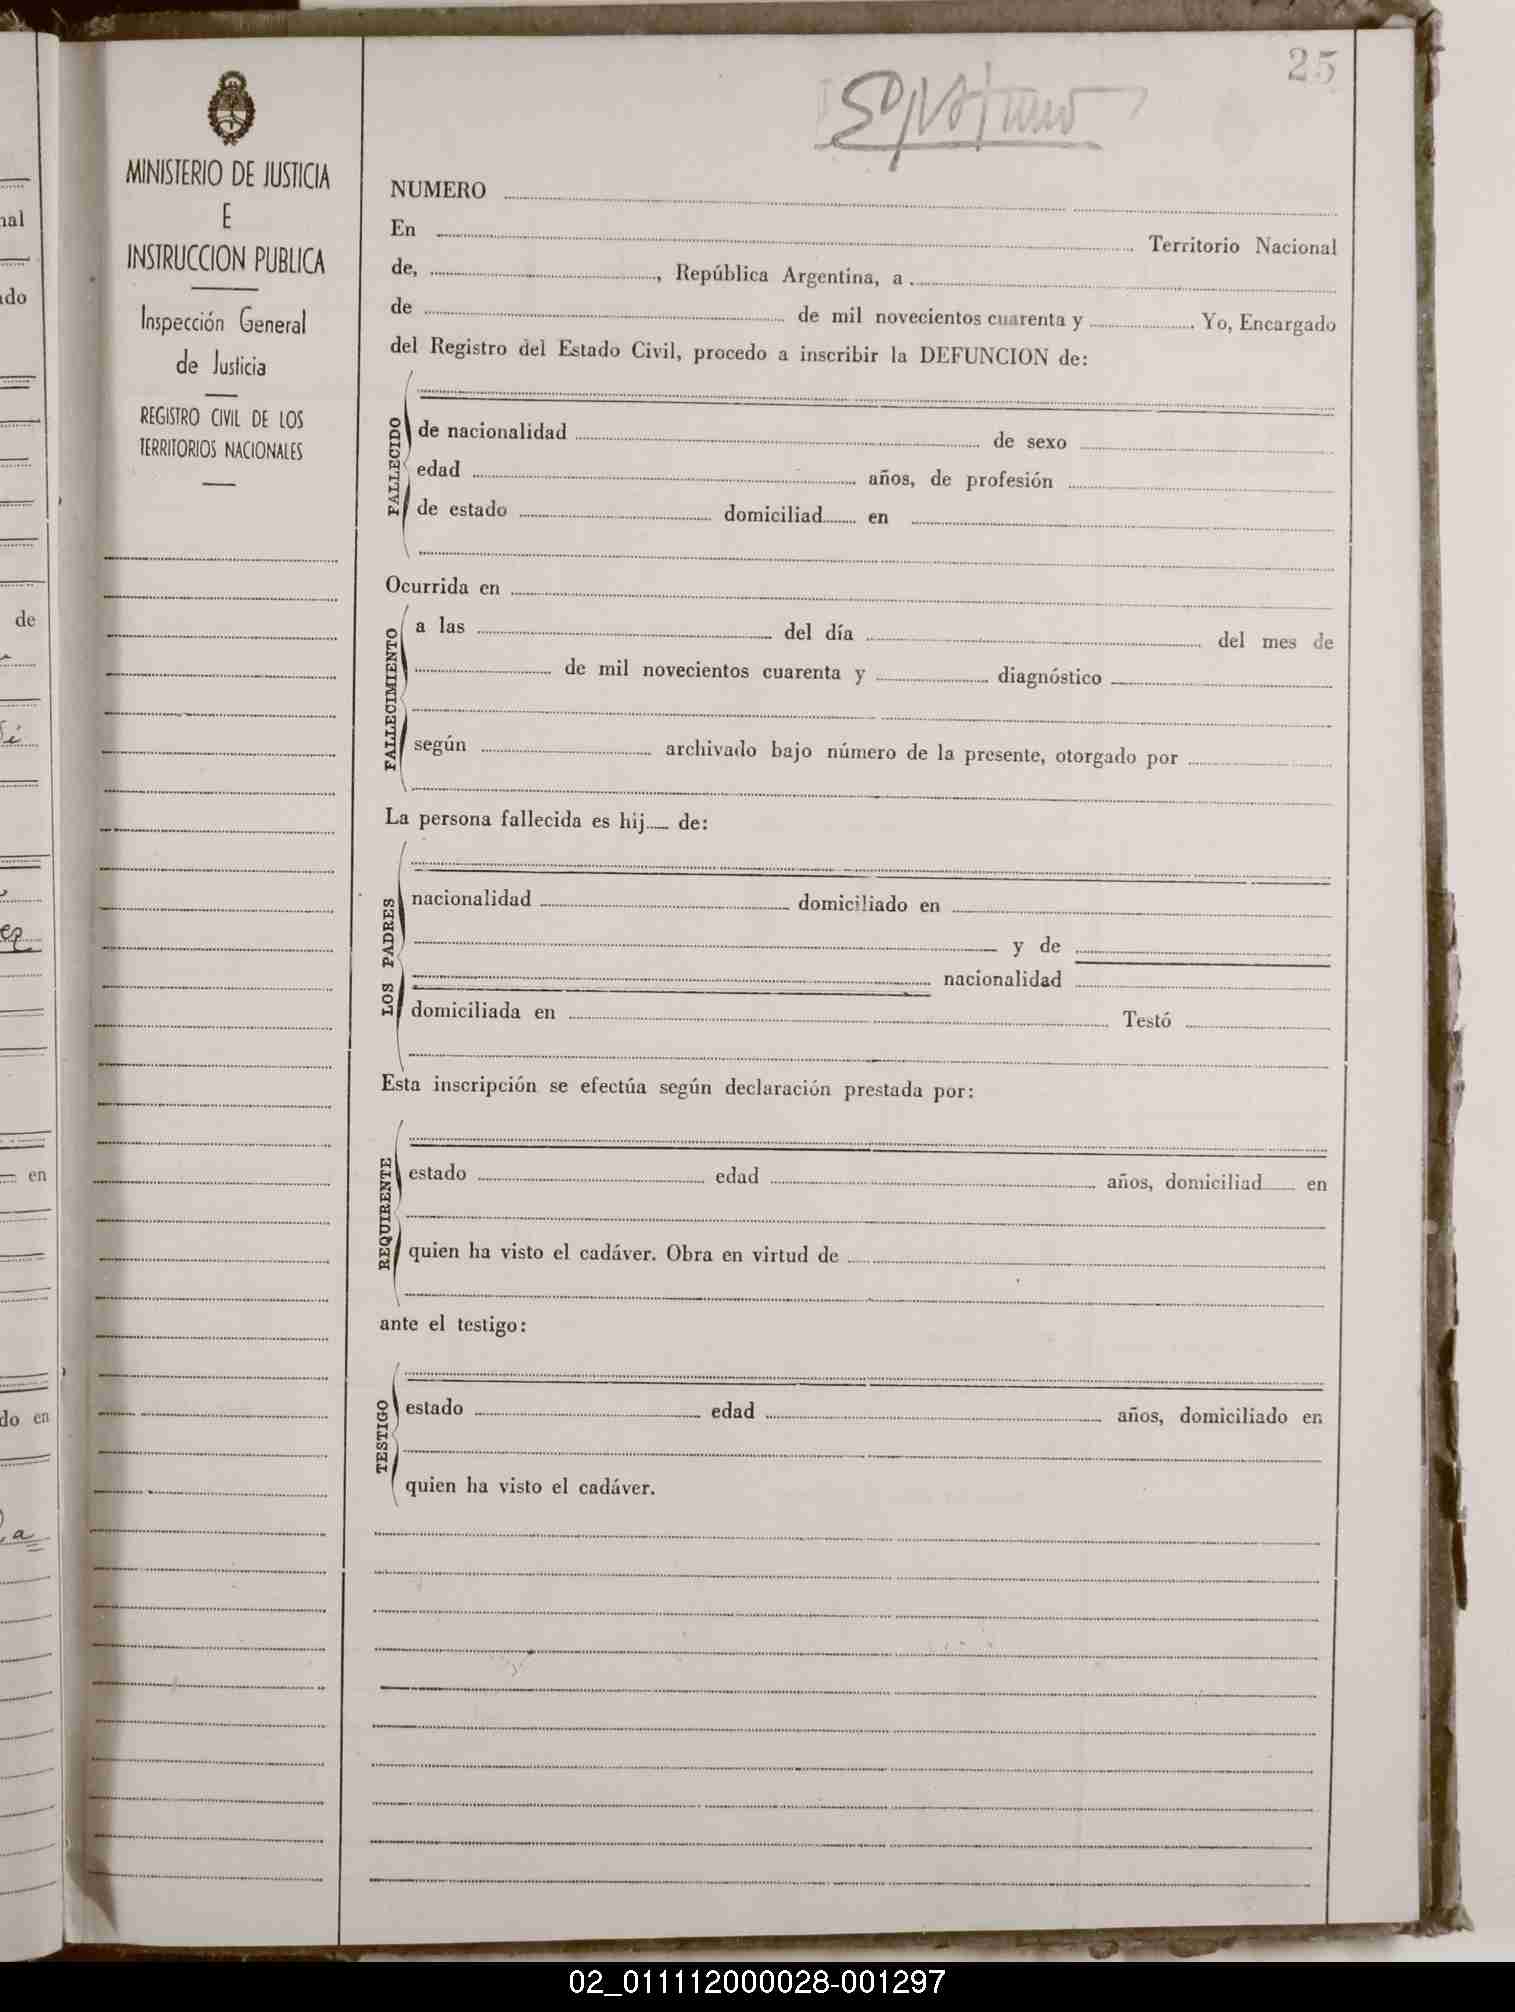 25
MINISTERIO DE JUSTICIA
E
INSTRUCCION PUBLICA
Inspección General
de Justicia
REGISTRO CIVIL DE LOS
TERRITORIOS NACIONALES
NUMERO
En Territorio Nacional
de, , República Argentina, a
de de mil novecientos cuarenta y Yo, Encargado
del Registro del Estado Civil, procedo a inscribir la DEFUNCION de:
FALLECIDO
de nacionalidad de sexo
edad años, de profesión
de estado domiciliad en
Ocurrida en
FALLECIMIENTO
a las del día del mes de
de mil novecientos cuarenta y diagnóstico
según archivado bajo número de la presente, otorgado por
La persona fallecida es hij de:
LOS PADRES
nacionalidad domiciliado en
y de
nacionalidad
domiciliada en Testó
Esta inscripción se efectúa según declaración prestada por:
REQUIRENTE
estado edad años, domiciliad en
quien ha visto el cadáver. Obra en virtud de
ante el testigo:
TESTIGO
estado edad años, domiciliado en
quien ha visto el cadáver.
02_011112000028-001297